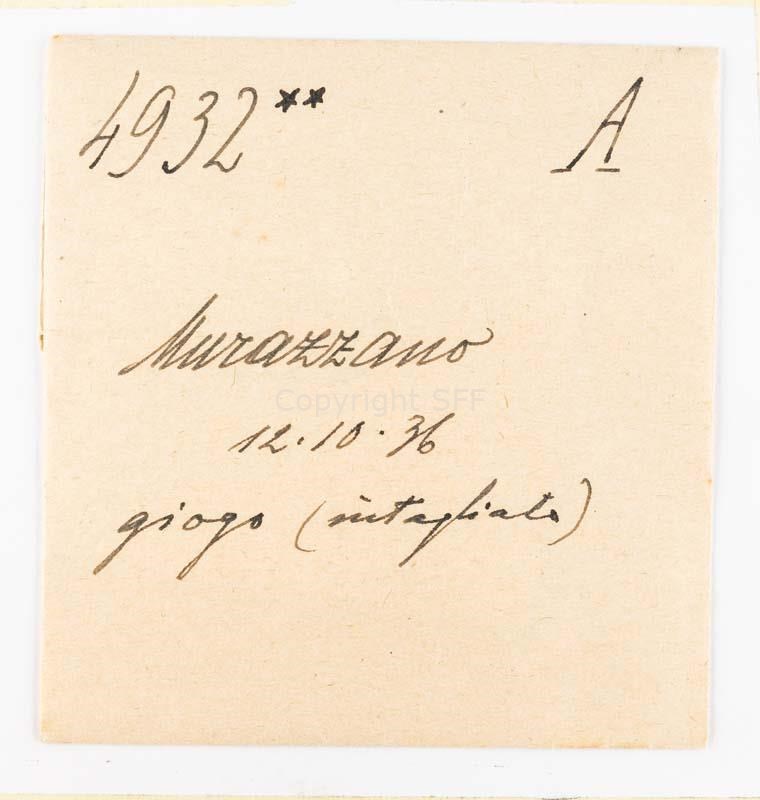 4932** A
Murazzano
Copyright SFF
12.10.36
giogo (intagliato)